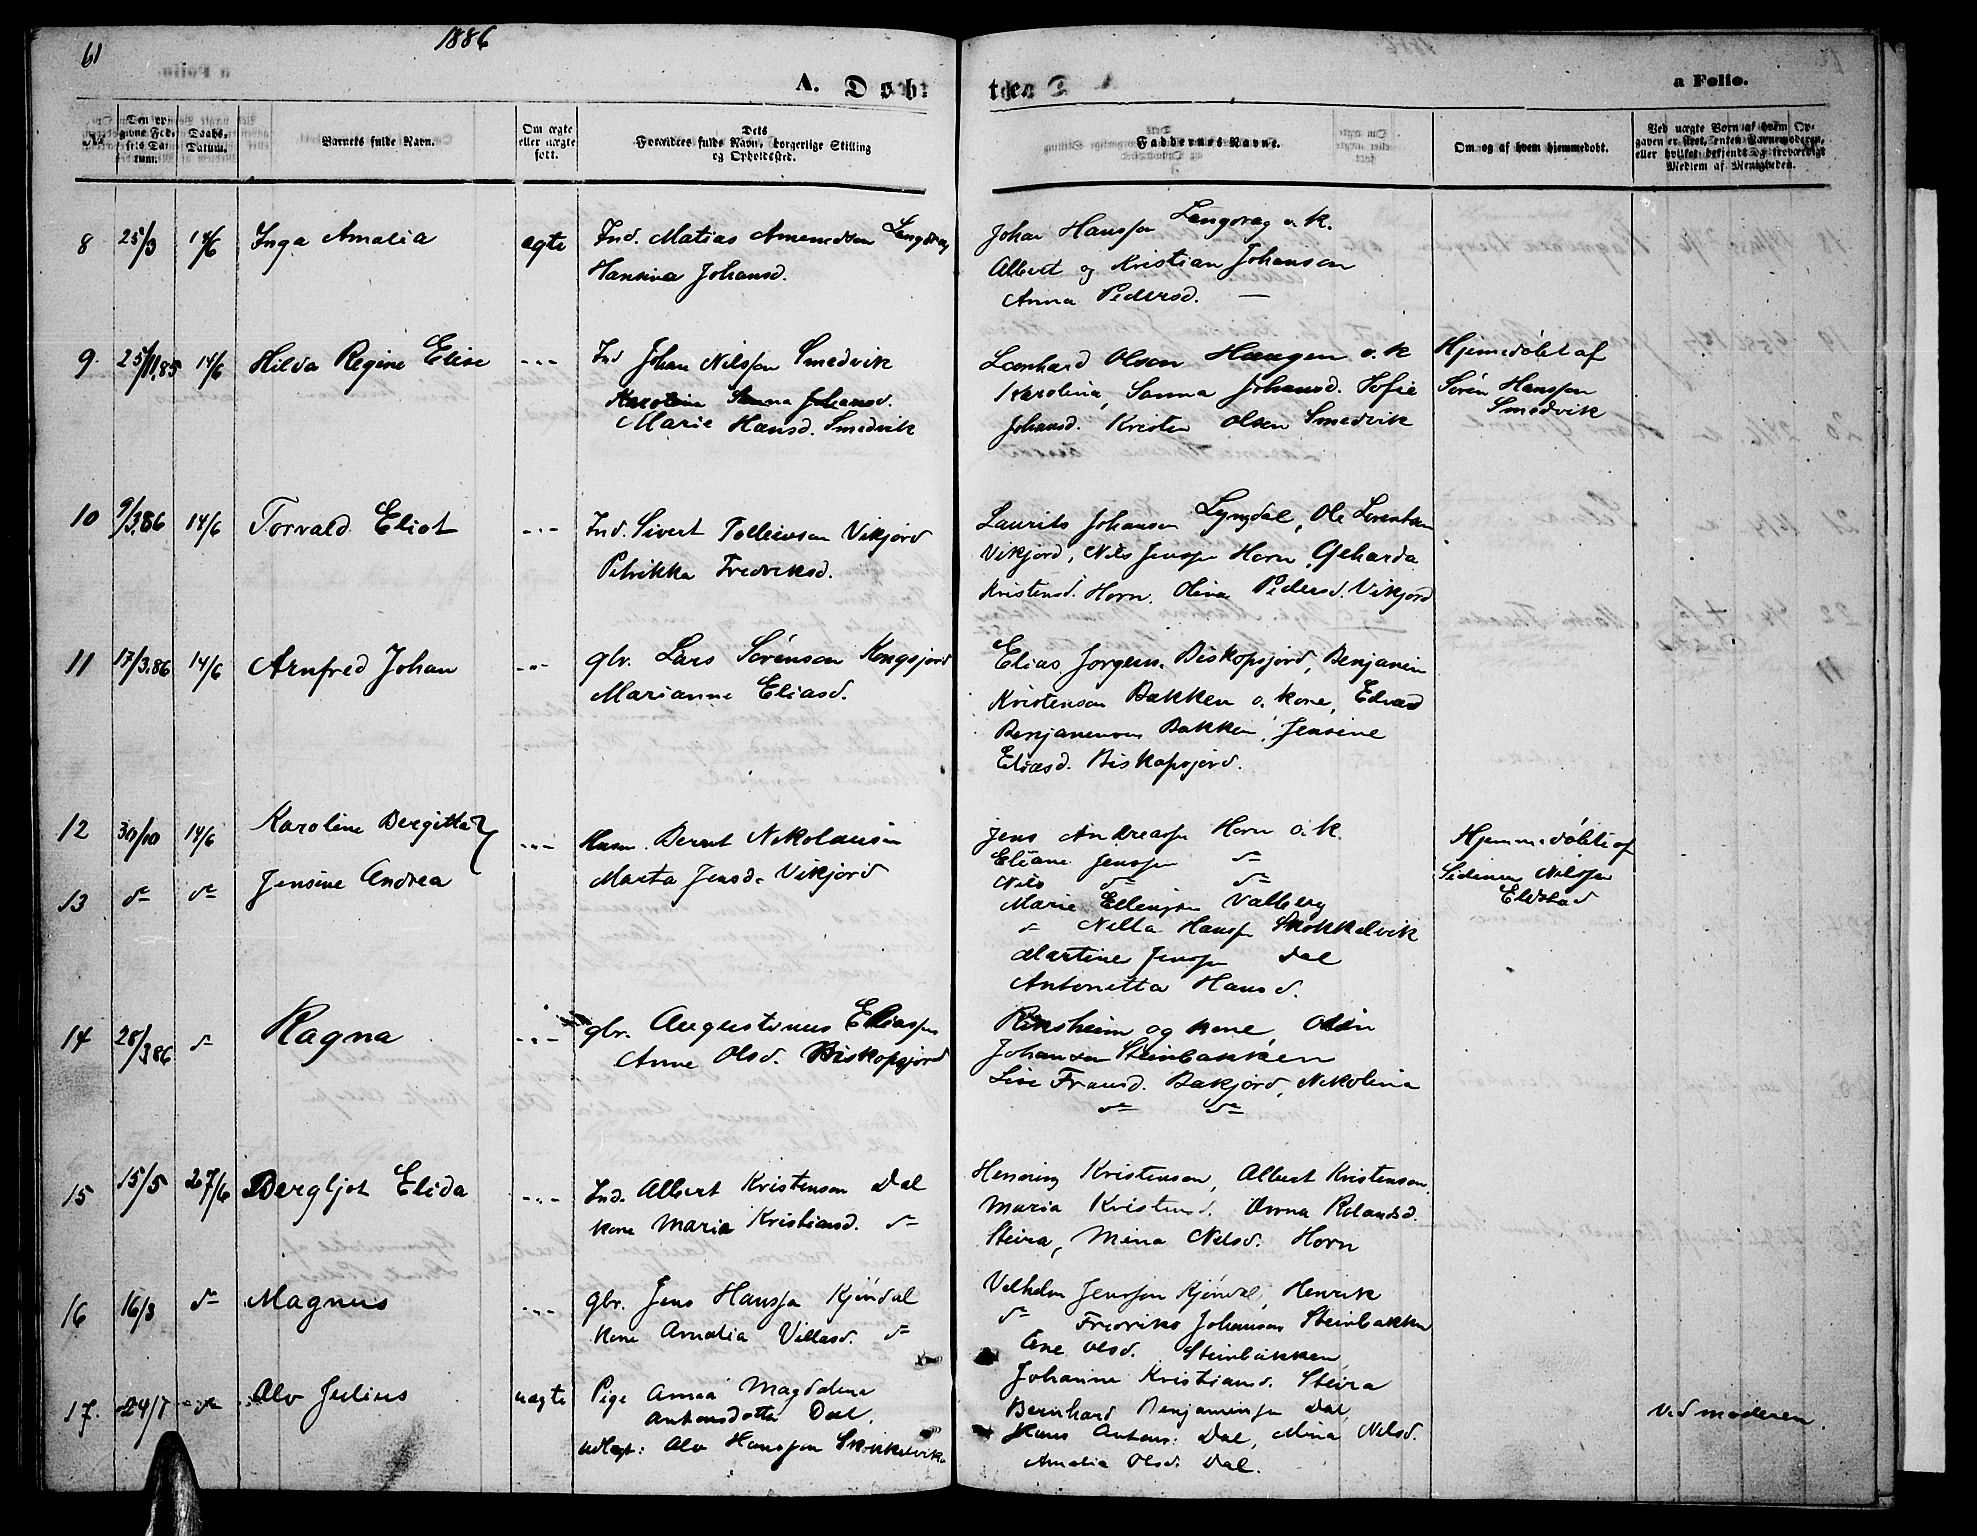 61
1886
A. Døb-
te.
a Folio.
No
Den op-
givne Fød-
sels Da-
tum.
Daabs-
Datum.
Barnets fulde Navn.
Om ægte
eller uægte
født.
Forældres fulde Navn, Dets borgerlige Stilling
og Opholdssted.
Faddernes Navne.
Om og af hvem hjemmedøbt.
Ved uægte Børn af hvem Op-
gaven er skeet, enten Barnemoderen,
eller hvilket bekjendt og troværdigt
Medlem af Menigheden.
8 25/3 14/6 Inga Amalia ægte Ind. Matias Amundsen Langdrag
Hansina Johansd.
Johan Hanssen Langdrag o. k.
Albert og Kristian Johansen
Anna Pedersd. —
9. 25/11.85 14/6 Hilda Regine Elise -"- Ind Johan Nilssen Smedvik
Karolina Sanna Johansd.
Marie Hansd. Smedvik
Leonhard Olsen Haugen o. k
Karolina, Sanna Johansd. Sofie
Johansd. Kristen Olsen Smedvik
Hjemedøbt af
Søren Hanssen
Smedvik
10 9/3.86 14/6 Torvald Eliot -"- Ind. Sivert Tollevsen Vikjord
Petrikka Fredriksd.
Laurits Johansen Lyngdal, Ole Lorentsen
Vikjord, Nils Jenssen Horn, Geharda
Kristensd. Horn. Olina Pedersd. Vikjord
11 17/3.86 14/6 Arnfred Johan -"- gbr. Lars Sørenson Kongsjord
Marianne Eliasd.
Elias Jorgens. Biskopsjord, Benjamin
Kristenson Bakken o. kone, Edvard
Benjaminsen Bakken, Jensine
Eliasd. Biskopsjord.
12 30/10 14/6 Karoline Bergitta
-"- Husm. Bernt Nikolausen
Marta Jensd. Vikjord
13 do do Jensine Andrea
Jens Andreassen Horn o. k.
Eliane Jenssen do
Nils do do
Marie Ellingsen Valberg
do Nella Hanssen Skokkelvik
Martine Jenssen Dal
Antonetta Hansd.
Hjemmedøbte af
Sidenius Nilssen
Eldstad
14 28/3 86 do Ragna -"- gbr. Augustinus Eliassen
Anne Olsd. Biskopsjord
Rinsheim og kone, Odin
Johansen Steinbakken
Lise Fransd. Bakjord, Nikolina
do do
15 15/5 27/6 Bergljot Elida -"- Ind. Albert Kristenson Dal
kone Maria Kristiansd. do
Henning Kristenson, Albert Kristenson.
Maria Kristensd. Anna Rolandsd.
Steira, Mina Nelsd. Horn
16 16/3 do Magnus -"- gbr. Jens Hanssen Kjøndal
kone Amalia Villasd. do
Velhelm Jenssen Kjøndal, Henrik
do Fredriks Johansen Steinbakken
Ane Olsd. Steinbakken
Johanne Kristiansd. Steira
17. 24/7 do Alv Julius uægte Pige Anna Magdalena
Antonsdotta Dal.
udlagt: Alv Hanssen Skokkelvik
Bernhard Benjaminsen Dal,
Hans Antons: Dal, Mina Nelsd.
Amalia Olsd. Dal.
Ved moderen.